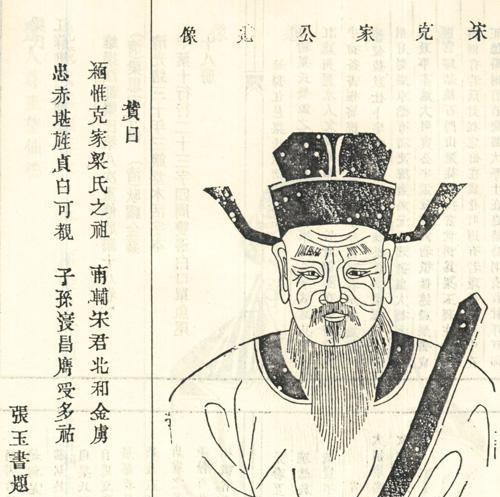 宋克家公遺像
贊曰
緬惟克家梁氏之祖 南輔宋君北和金虜
忠赤堪旌貞白可覩 子孫寖昌膺受多祜
張玉書題